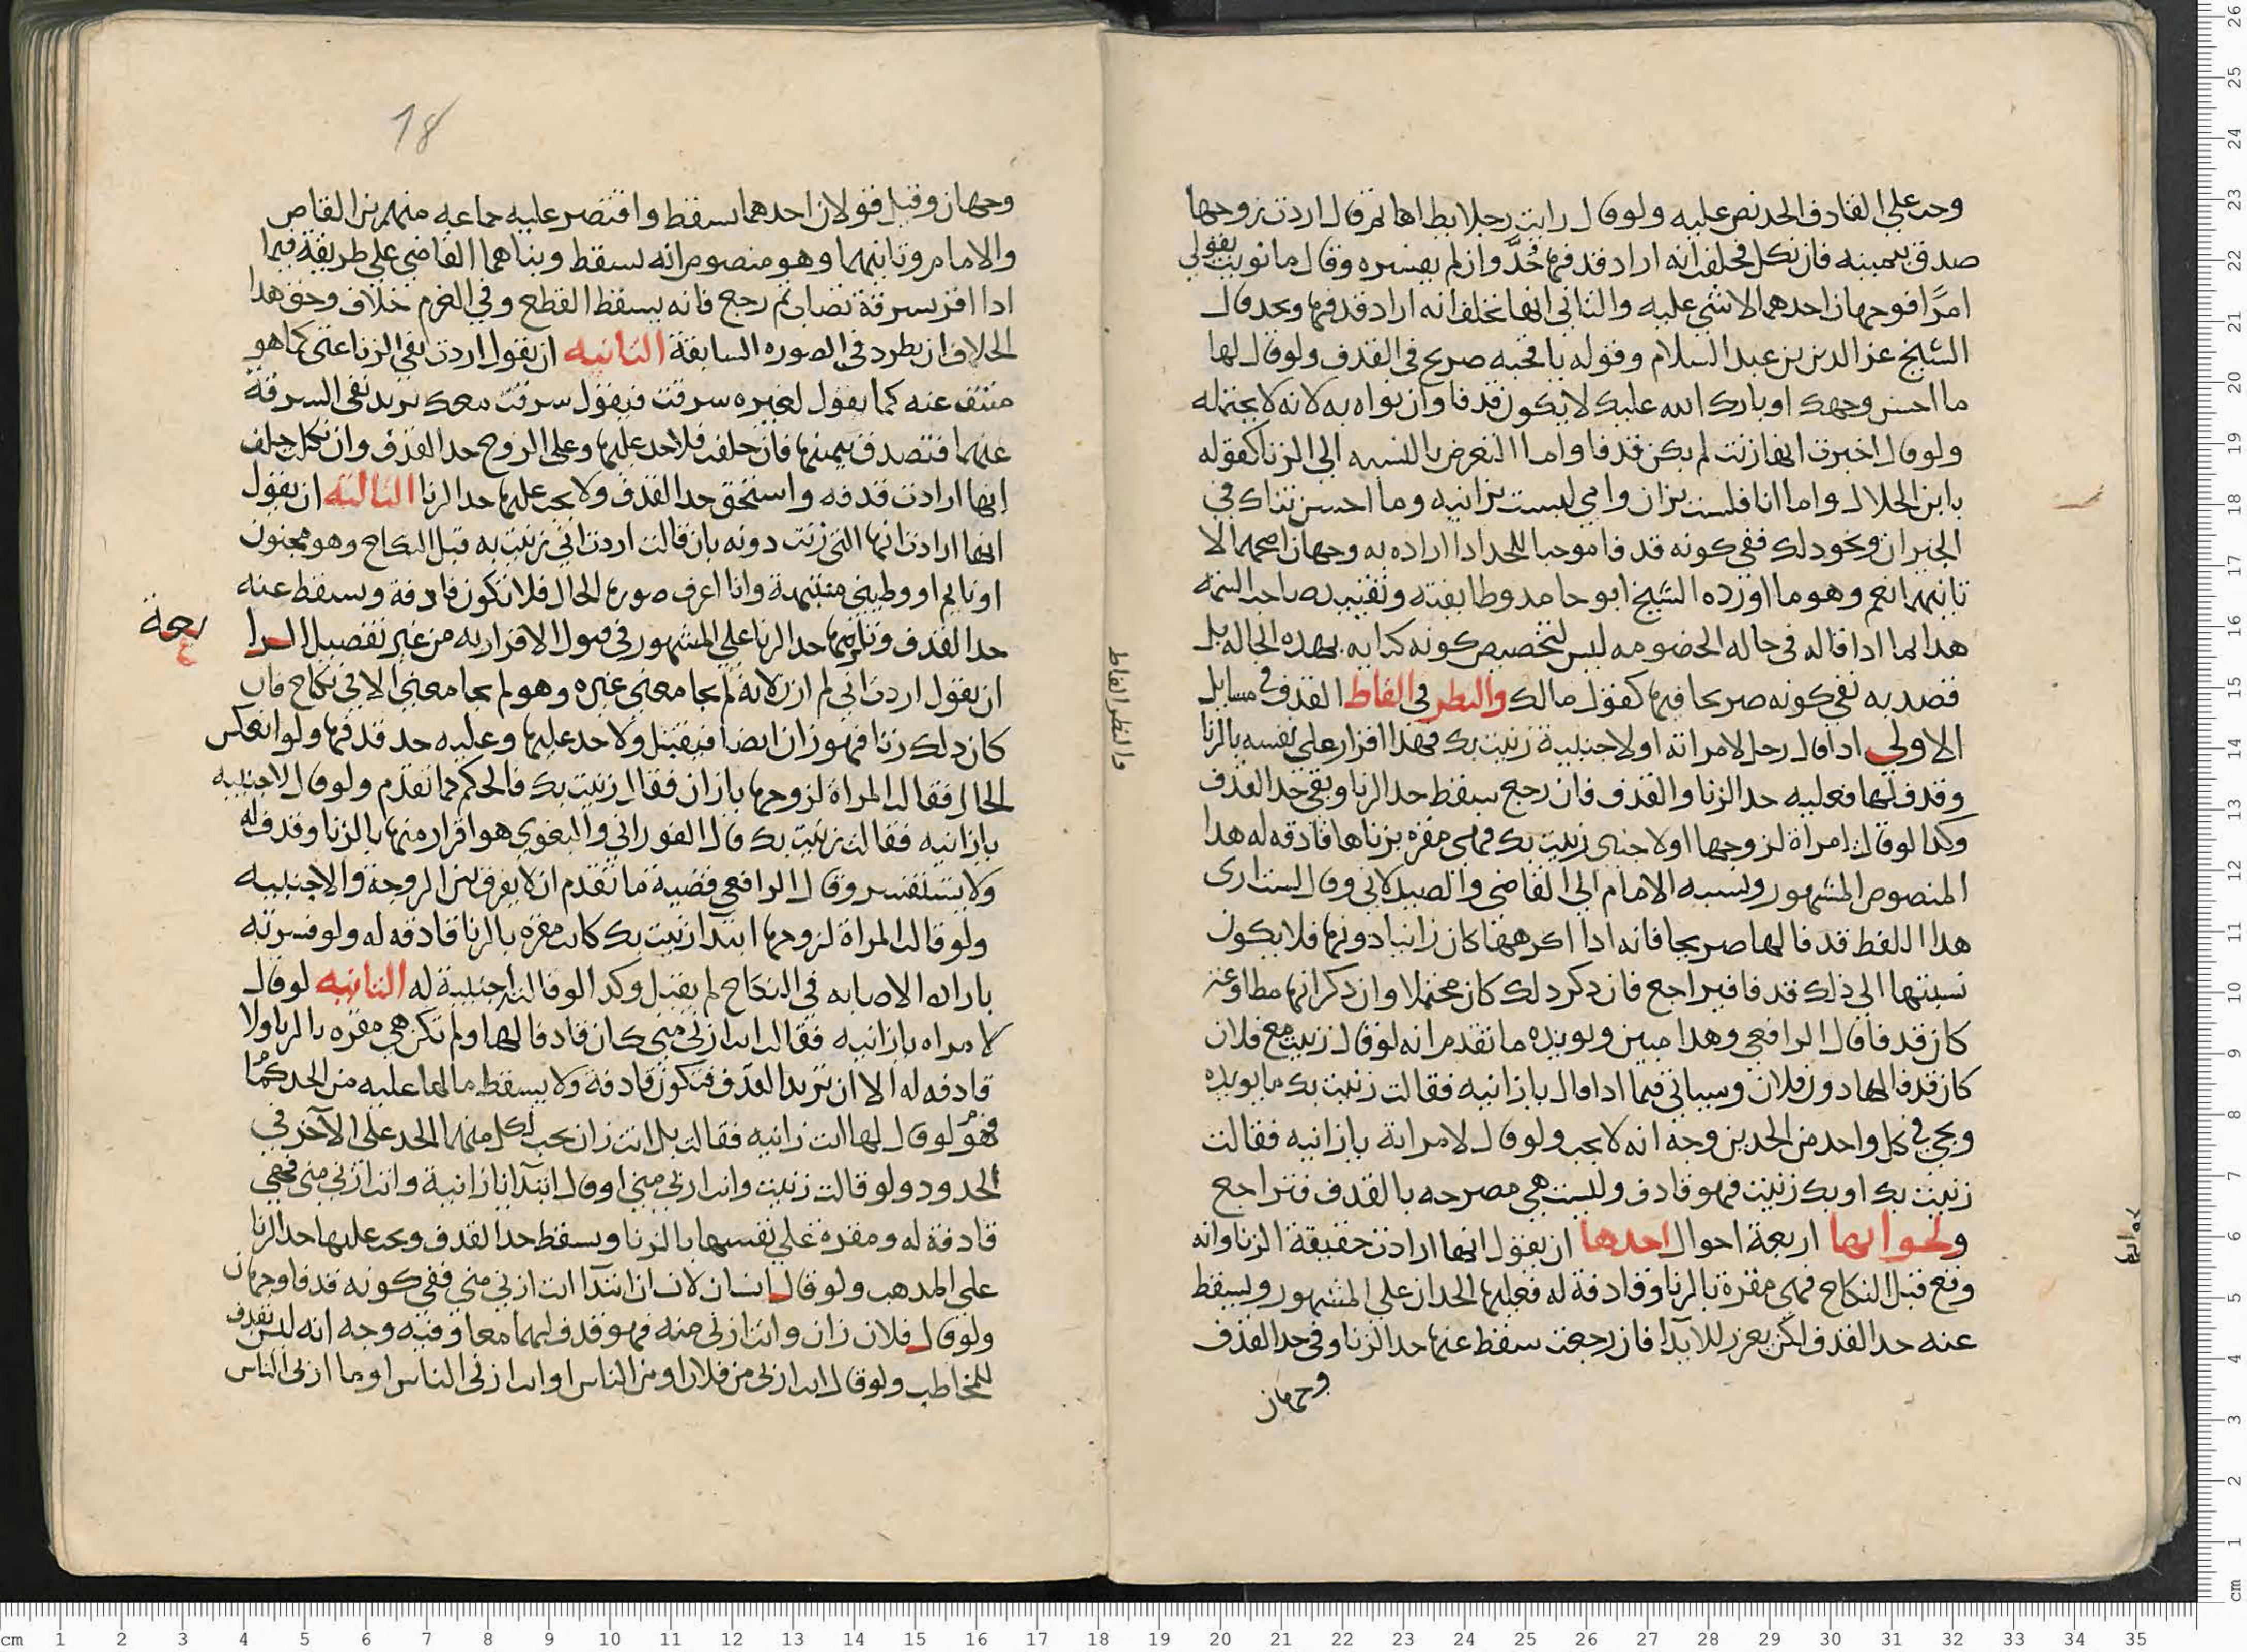 وحد على القاذف الحد نص عليه ولو قال رايت رجلا يطاها ثم قال اردت زوجها
صدق بيمينه فان نكل فحلفت انه اراد قذفها حُدَّ وان لم يفسره وقال ما نويت بقولي
امرًا فوجهان احدهما لا شي عليه والثاني انها تحلف انه اراد قذفها ويحد قال
الشيخ عز الدين بن عبد السلام وقوله يا قحبه صريح في القذف ولو قال لها
ما احسن وجهك او بارك الله عليك لا يكون قذفا وان نواه به لانه لا يحتمله
ولو قال اخبرت انها زنت لم يكن قذفا واما التعرض بالنسبه الى الزنا كقوله
يا ابن الحلال واما انا فلست بزان وامي ليست بزانيه وما احسن ثناك في
الجيران ونحو ذلك ففي كونه قذفا موجبا للحد اذا اراده به وجهان اصحهما لا
ثانيهما نعم وهو ما اورده الشيخ ابو حامد وطايفته وتقييد صاحب التتمه
هذا بما اذا قاله في حاله الخصومه ليس لتخصيص كونه كنايه بهذه الحاله بل
قصد به نفي كونه صريحا فيها كقول مالك والنظر في الفاظ القذف في مسايل
الاولى اذا قال رجل لامراته او لاجنبية زنيت بك فهذا اقرار على نفسه بالزنا
وقذف لها فعليه حد الزنا والقذف فان رجع سقط حد الزنا وبقي حد القذف
وكذا لو قالت امراة لزوجها او لاجنبي زنيت بك فهي مقره بزناها قاذفه له هذا
المنصوص المشهور ونسبه الامام الى القاضي والصيدلاني وقال
هذا اللفظ قذفا لها صريحا فانه اذا اكرهها كان زانيا دونها فلا يكون
نسبتها الى ذلك قذفا فيراجع فان ذكر ذلك كان محتملا وان ذكر انها مطاوعة
كان قذفا قال الرافعي وهذا مبين ويويده ما تقدم انه لو قال زنيت مع فلان
كان قذفا لها دون فلان وسياتي فيما اذا قال يا زانيه فقالت زنيت بك ما يويده
ويجي في كل واحد من الحدين وجه انه لا يجب ولو قال لامراته يا زانيه فقالت
زنيت بك او بك زنيت فهو قاذف وليست هي مصرحه بالقذف فتراجع
ولجوابها اربعة احوال احدها ان يقول انها ارادت حقيقة الزنا وانه
وقع قبل النكاح فهي مقرة بالزنا وقاذفة له فعليها الحدان على المشهور ويسقط
عنه حد القذف لكن يعزر للايذا فان رجعت سقط عنها حد الزنا وفي حد القذف
وجهان
والنظر الفاظ
جوابها
18
وجهان وقيل قولان احدهما يسقط واقتصر عليه جماعه منهم بن القاص
والامام وثانيهما وهو منصوص انه لا يسقط وبناهما القاضي على طريقة فيما
اذا اقر بسرقة نصاب ثم رجع فانه يسقط القطع وفي الغرم خلاف وحق هذا
الخلاف ان يطرد في الصوره السابقة الثانيه ان يقول اردت نفي الزنا عني كما هو
منتف عنه كما يقول لغيره سرقت فيقول سرقت معك تريد نفي السرقة
عنهما فتصدق بيمينها فان حلفت فلا حد عليها وعلى الزوج حد القذف وان نكلت حلف
انها ارادت قذفه واستحق حد القذف ولا يجب عليها حد الزنا الثالثه ان يقول
انها ارادت انها التي زنت دونه بان قالت اردت اني زنيت به قبل النكاح وهو مجنون
او نايم او وطيني مشتبهة وانا اعرف صورة الحال فلا تكون قاذفة ويسقط عنه
حد القذف وتلزمها حد الزنا على المشهور في قبول الاقرار به من غير تفصيل الرا
بعة
ان يقول اردت اني لم ازن لانه لم يجامعني غيره وهو لم يجامعني الا في نكاح فان
كان ذلك زنا فهو زان ايضا فيقبل ولا حد عليها وعليه حد قذفها ولو انعكس
الحال فقالت المراة لزوجها يا زان فقال زنيت بك فالحكم كما تقدم ولو قال لاجنبيه
يا زانيه فقالت زنيت بك قال الفوراني والبغوي هو اقرار منها بالزنا وقذف له
ولا يستفسر وقال الرافعي قضية ما تقدم ان لا يفرق بين الزوجة والاجنبيه
ولو قالت المراة لزوجها ابتدا زنيت بك كانت مقرة بالزنا قاذفه له ولو فسرته
باراده الاصابه في النكاح لم يقبل وكذا لو قالته اجنبية له الثانيه لو قال
لامراه يا زانيه فقالت انت ازنى مني كان قاذفا لها ولم تكن هي مقره بالزنا ولا
قاذفه له الا ان تريد القذف فتكون قاذفة ولا يسقط ما لها عليه من الحد كما
هو لو قال لها انت زانيه فقالت بل انت زان يجب لكل منهما الحد على الآخر في
الحدود ولو قالت زنيت وانت ازنى مني او قالت ابتدآ انا زانية وانت ازنى مني فهي
قاذفة له ومقرة على نفسها بالزنا ويسقط حد القذف ويجب عليها حد الزنا
على المذهب ولو قال انسان لانسان ابتدآ انت ازنى مني ففي كونه قذفا وجهان
ولو قال فلان زان وانت ازنى منه فهو قذف لهما معا وفيه وجه انه ليس بقذف
للمخاطب ولو قال انت ازنى من فلان او من الناس او انت ازنى الناس او يا ازنى الناس